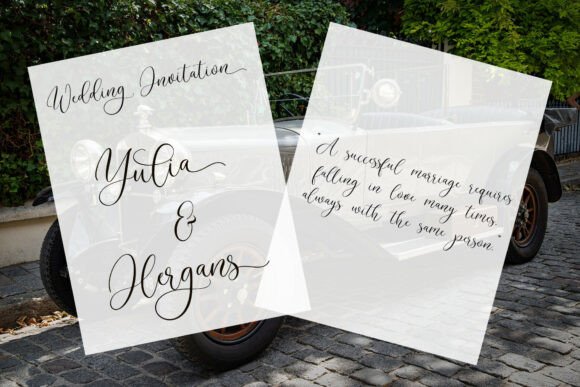 Wedding Invitation
Yulia
&
Hergans
"A successful marriage requires
falling in love many times,
always with the same person."